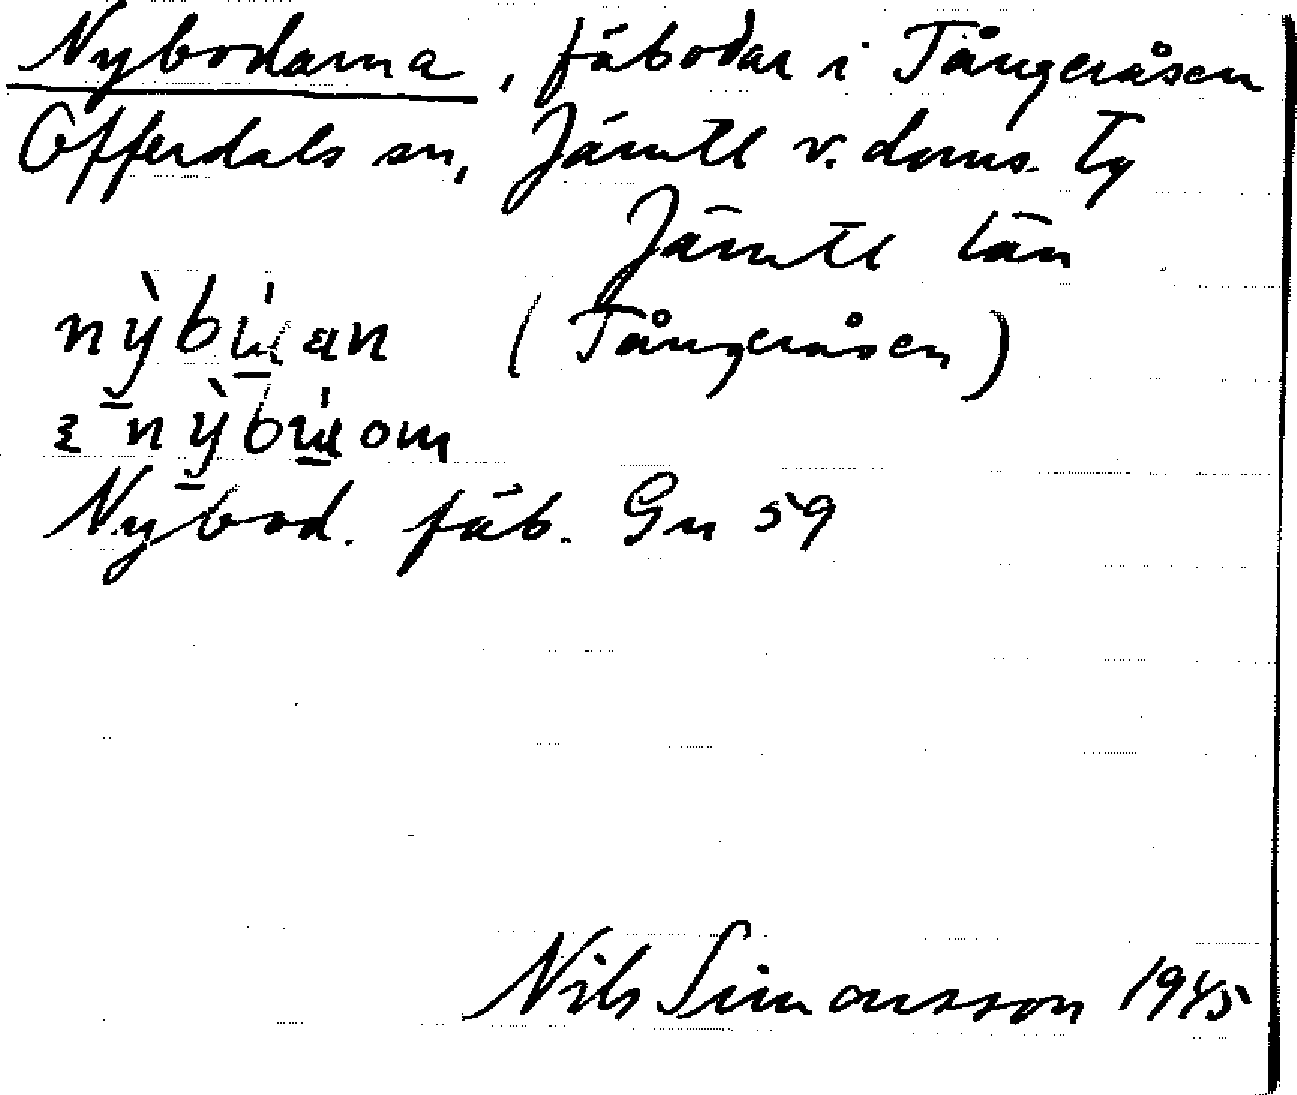 Nybodarna, fäbodar i Tångeråsen
Offerdals sn, Jämtl v. doms. Tg
Jämtl län
(Tångeråsen)
Nybod. fäb. Gn 59
Nils Simonsson 1945